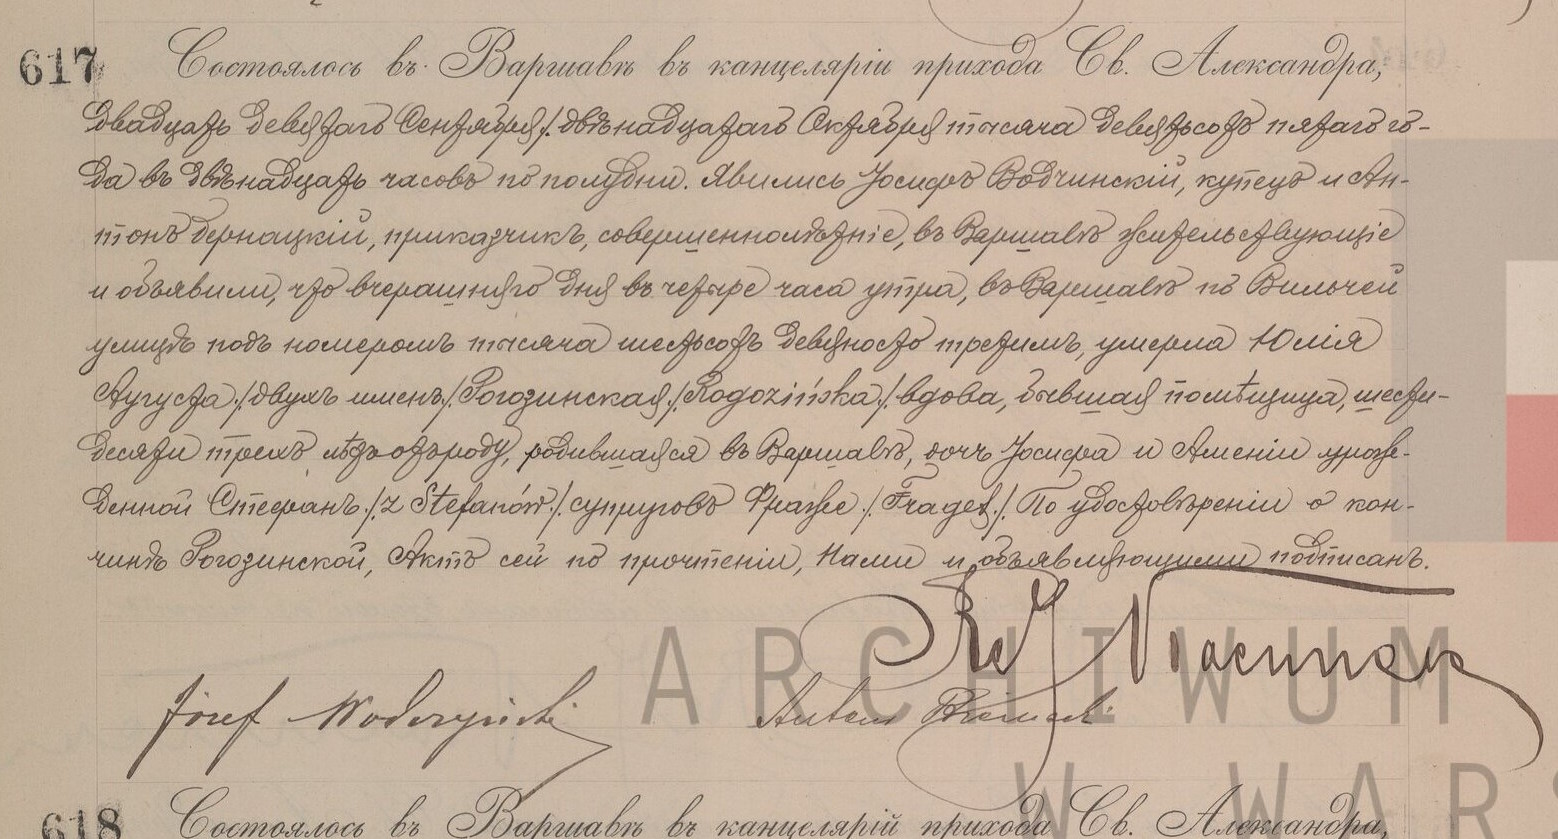 617
Состоялось въ Варшавѣ въ канцеляріи прихода Св. Александра,
двадцать девятаго Сентября /: двѣнадцатаго Октября тысяча девятьсотъ пятаго го-
да въ двѣнадцать часовъ по полудни. Явились Іосифъ Водчинскій, купецъ и Ан-
тонъ Бернацкій, приказчикъ, совершеннолѣтніе, въ Варшавѣ жительствующіе
и объявили, что вчерашняго дня въ четыре часа утра, въ Варшавѣ по Вильчей
улицѣ подъ номеромъ тысяча шестьсотъ девяносто третимъ, умерла Юлія
Аугуста /: двухъ именъ :/ Рогозинская /: Rogozińska :/ вдова, бывшая помѣщица, шести-
десяти трехъ лѣтъ отъ роду, родившаяся въ Варшавѣ, дочь Іосифа и Амеліи урож-
денной Стефанъ /: z Stefanów :/ супруговъ Фраже /: Fraget :/ По удостовѣреніи о кон-
чинѣ Рогозинской, Актъ сей по прочтеніи, Нами и объявляющими подписанъ.
Józef Wodczyński Antoni Biernacki
ARCHIWUM
W WARS
618
Состоялось въ Варшавѣ въ канцелярій прихода Св. Александра,